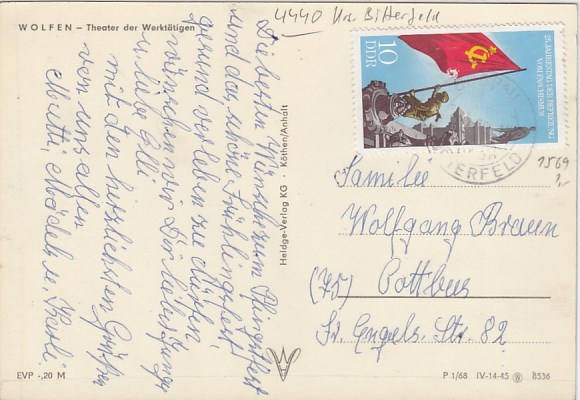 WOLFEN – Theater der Werktätigen
4440 Krs. Bitterfeld
Die besten Wünsche zum Pfingstfest
und das schöne Frühlingsfest
gesund verleben zu dürfen,
wünschen wir Dir lieber Junge
u. liebe Elli
mit den herzlichsten Grüßen
von uns allen
Mutti, Mädels u. Karli
Heldge-Verlag KG · Köthen/Anhalt
10
DDR
25. JAHRESTAG DER BEFREIUNG
VOM FASCHISMUS
TERFELD
1569
Familie
Wolfgang Braun
(75) Cottbus
Fr. Engels. Str. 82
EVP -,20 M
P 1/68 IV-14-45 8536